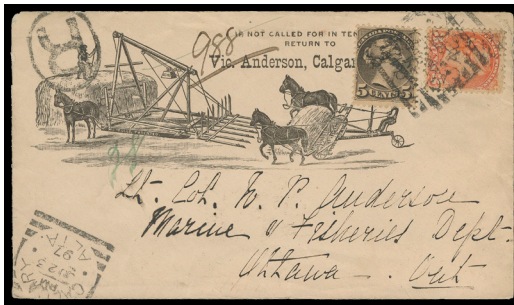 R
IF NOT CALLED FOR IN TEN
RETURN TO
Vic. Anderson, Calgar
988
5 CENTS 5
Lt. Col. W. P. Anderson
Marine & Fisheries Dept.
Ottawa - Ont
97
ALTA